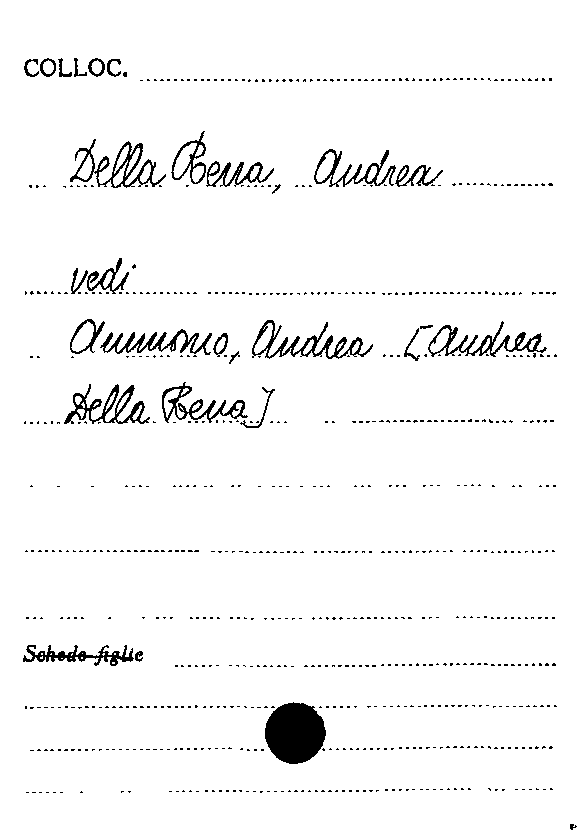 COLLOC.
Della Rena, Andrea
vedi
Ammonio, Andrea [Andrea
Della Rena]
Schede figlie